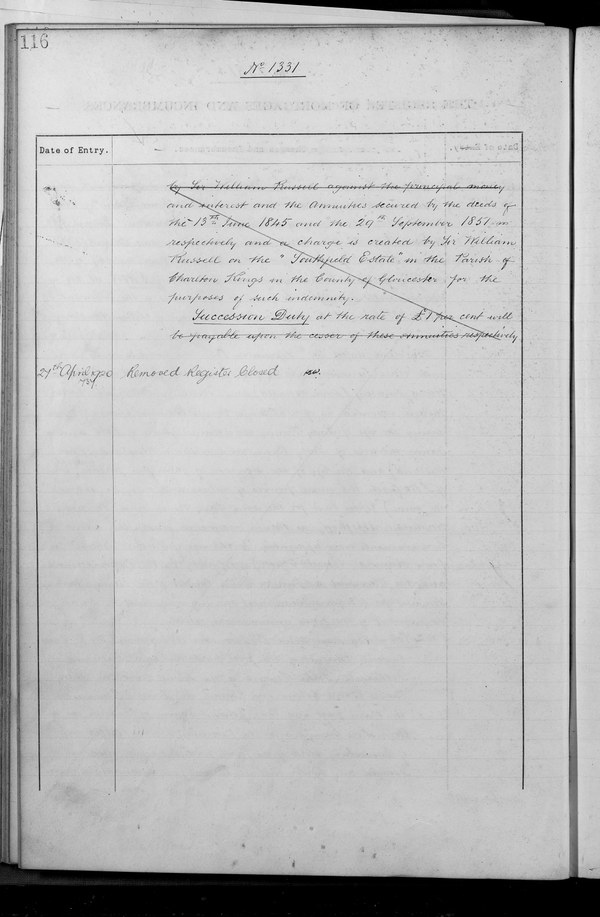 116
No. 1331
Date of Entry.
by Sir William Russell against the principal money
and interest and the Annuities secured by the deeds of
the 13th June 1845 and the 29th September 1851
respectively and a charge is created by Sir William
Russell on the "Southfield Estate" in the Parish of
Charlton Kings in the County of Gloucester for the
purposes of such indemnity.
Succession Duty at the rate of £1 per cent will
be payable upon the cesser of these annuities respectively
April Removed Register Closed